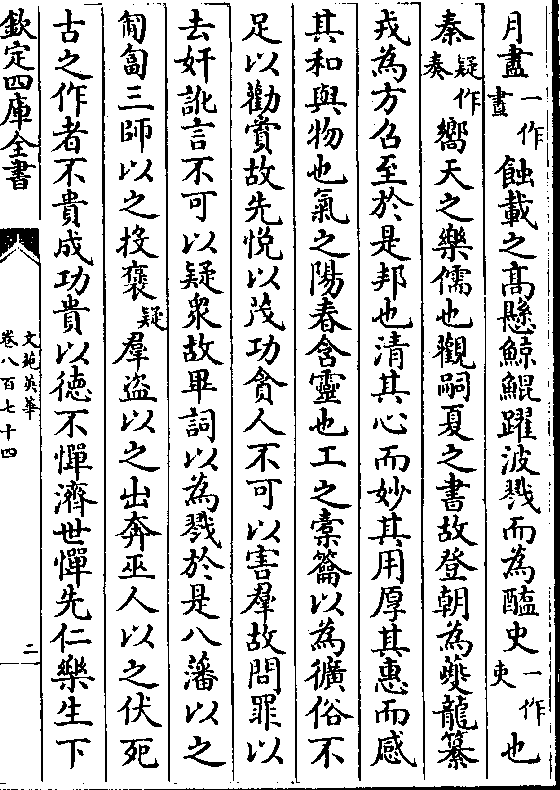 月蠧一作蠹蝕載之髙懸鯨鯤躍波戮而為醢史一作吏也
秦疑作奏嚮天之樂儒也觀嗣夏之書故登朝為夔龍纂
戎為方召至於是邦也清其心而妙其用厚其惠而感
其和與物也氣之陽春含靈也工之橐籥以為獷俗不
足以勸賞故先悦以茂功貪人不可以害羣故問罪以
去奸訛言不可以疑衆故畢詞以為戮於是八藩以之
匍匐三師以之投褒疑羣盗以之出奔巫人以之伏死
古之作者不貴成功貴以徳不憚濟世憚先仁樂生下
欽定四庫全書
文苑英華
卷八百七十四
二